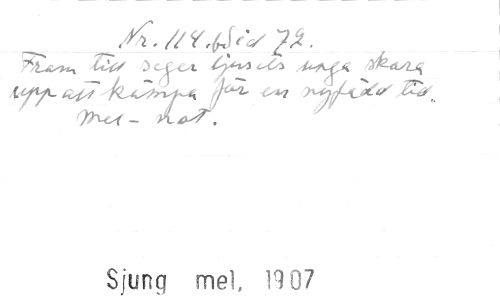 Nr. 114. Sid 72.
Fram till seger ljusets unga skara
upp att kämpa för en nyfödd tid.
Mel-not.
Sjung mel, 1907